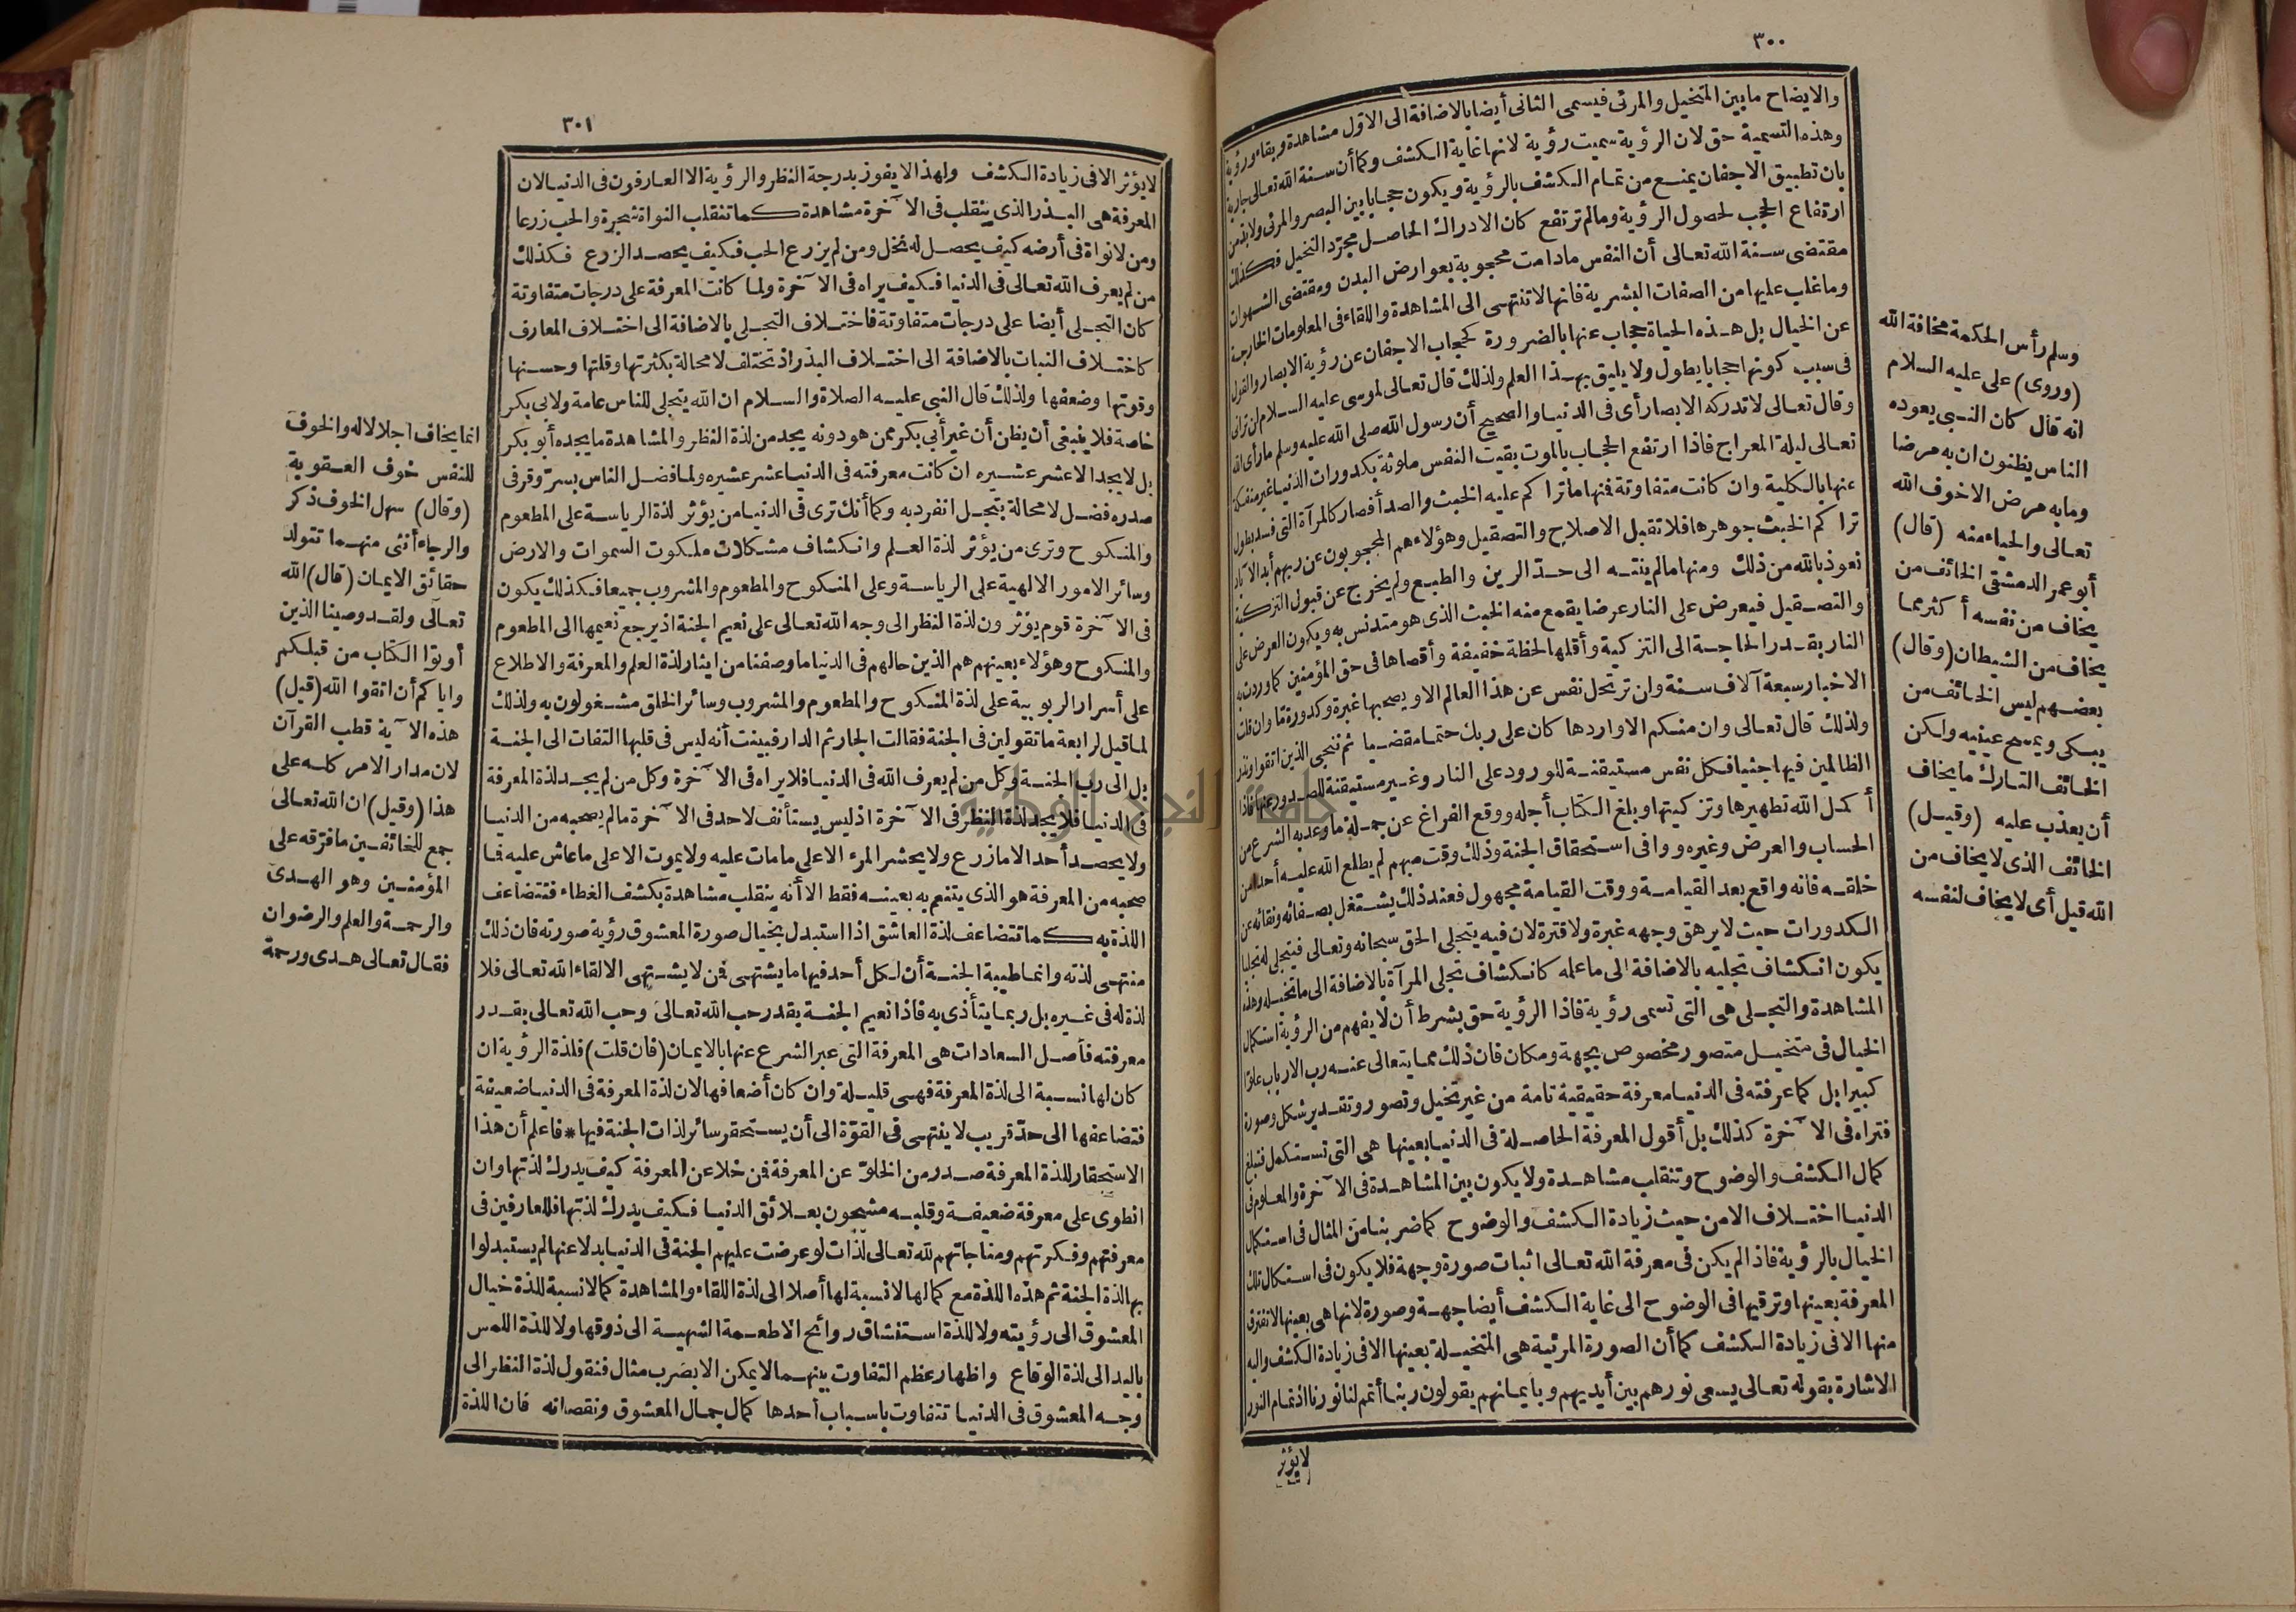 ٣٠٠
والايضاح مابين المتخيل والمرئى فيسمى الثانى أيضا بالاضافة الى الاول مشاهدة ولقاء ورؤية
وهذه التسمية حق لان الرؤية سميت رؤية لانها غاية الكشف وكما أن سنة الله تعالى جارية
بان تطبيق الاجفان يمنع من تمام الكشف بالرؤية ويكون حجابا بين البصر والمرئى ولا بد من
ارتفاع الحجب لحصول الرؤية ومالم ترتفع كان الادراك الحاصل مجرد التخيل فكذلك
مقتضى سنة الله تعالى أن النفس مادامت محجوبة بعوارض البدن ومقتضى الشهوات
وما غلب عليها من الصفات البشرية فانها لا تنتهى الى المشاهدة واللقاء فى المعلومات الخارجة
عن الخيال بل هذه الحياة حجاب عنها بالضرورة كحجاب الاجفان عن رؤية الابصار والقول
فى سبب كونها حجابا يطول ولا يليق بهذا العلم ولذلك قال تعالى لموسى عليه السلام لن ترانى
وقال تعالى لا تدركه الابصار أى فى الدنيا والصحيح أن رسول الله صلى الله عليه وسلم ما رأى الله
تعالى ليلة المعراج فاذا ارتفع الحجاب بالموت بقيت النفس ملوثة بكدورات الدنيا غير منفكة
عنها بالكلية وان كانت متفاوتة فمنها ما تراكم عليه الخبث والصدأ فصار كالمرآة التى فسد بطول
تراكم الخبث جوهرها فلا تقبل الاصلاح والتصقيل وهؤلاءهم المحجوبون عن ربهم أبد الآباد
نعوذ بالله من ذلك ومنها مالم ينته الى حد الرين والطبع ولم يخرج عن قبول التزكية
والتصقيل فيعرض على النار عرضا يقمع منه الخبث الذى هو متدنس به ويكون العرض على
النار بقدر الحاجة الى التزكية وأقلها لحظة خفيفة وأقصاها فى حق المؤمنين كما وردت به
الاخبار سبعة آلاف سنة وان ترتحل نفس عن هذا العالم الا ويصحبها غبرة وكدورة ما وان قلت
ولذلك قال تعالى وان منكم الا واردها كان على ربك حتما مقضيا ثم ننجى الذين اتقوا ونذر
الظالمين فيها جثيا فكل نفس مستيقنة للورود على النار وغير مستيقنة للصدور عنها فاذا
أكمل الله تطهيرها وتزكيتها وبلغ الكتاب أجله ووقع الفراغ عن جملة ما وعد به الشرع من
الحساب والعرض وغيره ووافى استحقاق الجنة وذلك وقت مبهم لم يطلع الله عليه أحدا من
خلقه فانه واقع بعد القيامة ووقت القيامة مجهول فعند ذلك يشتغل بصفائه ونقائه عن
الكدورات حيث لا يرهق وجهه غبرة ولا قترة لان فيه يتجلى الحق سبحانه وتعالى فيتجلى له تجليا
يكون انكشاف تجليه بالاضافة الى ما علمه كانكشاف تجلى المرآة بالاضافة الى ما تخيله وهذه
المشاهدة والتجلى هى التى تسمى رؤية فاذا الرؤية حق بشرط أن لا يفهم من الرؤية استكمال
الخيال فى متخيل متصور مخصوص بجهة ومكان فان ذلك مما يتعالى عنه رب الارباب علوا
كبيرا بل كما عرفته فى الدنيا معرفة حقيقية تامة من غير تخيل وتصور وتقدير شكل وصورة
فتراه فى الآخرة كذلك بل أقول المعرفة الحاصلة فى الدنيا بعينها هى التى تستكمل فتبلغ
كمال الكشف والوضوح وتنقلب مشاهدة ولا يكون بين المشاهدة فى الآخرة والمعلوم فى
الدنيا اختلاف الا من حيث زيادة الكشف والوضوح كما ضربنا من المثال فى استكمال
الخيال بالرؤية فاذا لم يكن فى معرفة الله تعالى اثبات صورة وجهة فلا يكون فى استكمال تلك
المعرفة بعينها وترقيها فى الوضوح الى غاية الكشف أيضا جهة وصورة لانها هى بعينها لا تفترق
منها الا فى زيادة الكشف كما أن الصورة المرئية هى المتخيلة بعينها الا فى زيادة الكشف واليه
الاشارة بقوله تعالى يسعى نورهم بين أيديهم وبأيمانهم يقولون ربنا أتمم لنا نورنا اذ تمام النور
لا يؤثر
وسلم رأس الحكمة مخافة الله
(وروى) على عليه السلام
انه قال كان النبى يعوده
الناس يظنون ان به مرضا
وما به مرض الا خوف الله
تعالى والحياء منه (قال)
أبو عمر الدمشقى الخائف من
يخاف من نفسه أكثر مما
يخاف من الشيطان (وقال)
بعضهم ليس الخائف من
يبكى ويمسح عينيه ولكن
الخائف التارك ما يخاف
أن يعذب عليه (وقيل)
الخائف الذى لا يخاف من
الله قيل أى لا يخاف لنفسه
٣٠١
لا يؤثر الا فى زيادة الكشف ولهذا لا يفوز بدرجة النظر والرؤية الا العارفون فى الدنيا لان
المعرفة هى البذر الذى ينقلب فى الآخرة مشاهدة كما تنقلب النواة شجرة والحب زرعا
ومن لا نواة فى أرضه كيف يحصل له نخل ومن لم يزرع الحب فكيف يحصد الزرع فكذلك
من لم يعرف الله تعالى فى الدنيا فكيف يراه فى الآخرة ولما كانت المعرفة على درجات متفاوتة
كان التجلى أيضا على درجات متفاوتة فاختلاف التجلى بالاضافة الى اختلاف المعارف
كاختلاف النبات بالاضافة الى اختلاف البذر اذ تختلف لا محالة بكثرتها وقلتها وحسنها
وقوتها وضعفها ولذلك قال النبى عليه الصلاة والسلام ان الله يتجلى للناس عامة ولابى بكر
خاصة فلا ينبغى أن يظن أن غير أبى بكر ممن هو دونه يجد من لذة النظر والمشاهدة ما يجده أبو بكر
بل لا يجد الا عشر عشيره ان كانت معرفته فى الدنيا عشر عشيره ولما فضل الناس بسر وقر فى
صدره فضل لا محالة بتجل انفرد به وكما أنك ترى فى الدنيا من يؤثر لذة الرياسة على المطعوم
والمنكوح وترى من يؤثر لذة العلم وانكشاف مشكلات ملكوت السموات والارض
وسائر الامور الالهية على الرياسة وعلى المنكوح والمطعوم والمشروب جميعا فكذلك يكون
فى الآخرة قوم يؤثرون لذة النظر الى وجه الله تعالى على نعيم الجنة اذ يرجع نعيمها الى المطعوم
والمنكوح وهؤلاء بعينهم هم الذين حالهم فى الدنيا ما وصفنا من ايثار لذة العلم والمعرفة والاطلاع
على أسرار الربوبية على لذة المنكوح والمطعوم والمشروب وسائر الخلق مشغولون به ولذلك
لما قيل لرابعة ما تقولين فى الجنة فقالت الجار ثم الدار فبينت أنه ليس فى قلبها التفات الى الجنة
بل الى رب الجنة وكل من لم يعرف الله فى الدنيا فلا يراه فى الآخرة وكل من لم يجد لذة المعرفة
فى الدنيا فلا يجد لذة النظر فى الآخرة اذ ليس يستأنف لاحد فى الآخرة مالم يصحبه من الدنيا
ولا يحصد أحد الا ما زرع ولا يحشر المرء الا على ما مات عليه ولا يموت الا على ما عاش عليه فما
صحبه من المعرفة هو الذى يتنعم به بعينه فقط الا أنه ينقلب مشاهدة بكشف الغطاء فتتضاعف
اللذة به كما تتضاعف لذة العاشق اذا استبدل بخيال صورة المعشوق رؤية صورته فان ذلك
منتهى لذته وانما طيبة الجنة أن لكل أحد فيها ما يشتهى فمن لا يشتهى الا لقاء الله تعالى فلا
لذة له فى غيره بل ربما يتأذى به فاذا نعيم الجنة بقدر حب الله تعالى وحب الله تعالى بقدر
معرفته فأصل السعادات هى المعرفة التى عبر الشرع عنها بالايمان (فان قلت) فلذة الرؤية ان
كان لها نسبة الى لذة المعرفة فهى قليلة وان كان أضعافها لان لذة المعرفة فى الدنيا ضعيفة
فتضاعفها الى حد قريب لا ينتهى فى القوة الى أن يستحقر سائر لذات الجنة فيها * فاعلم أن هذا
الاستحقار للذة المعرفة صدر من الخلو عن المعرفة فمن خلا عن المعرفة كيف يدرك لذتها وان
انطوى على معرفة ضعيفة وقلبه مشحون بعلائق الدنيا فكيف يدرك لذتها فللعارفين فى
معرفتهم وفكرتهم ومناجاتهم لله تعالى لذات لو عرضت عليهم الجنة فى الدنيا بدلا عنها لم يستبدلوا
بها لذة الجنة ثم هذه اللذة مع كمالها لا نسبة لها أصلا الى لذة اللقاء والمشاهدة كما لا نسبة للذة خيال
المعشوق الى رؤيته ولا للذة استنشاق روائح الاطعمة الشهية الى ذوقها ولا للذة اللمس
باليد الى لذة الوقاع واظهار عظم التفاوت بينهما لا يمكن الا بضرب مثال فنقول لذة النظر الى
وجه المعشوق فى الدنيا تتفاوت باسباب أحدها كمال جمال المعشوق ونقصانه فان اللذة
انما يخاف اجلالا له والخوف
للنفس خوف العقوبة
(وقال) سهل الخوف ذكر
والرجاء أنثى منهما تتولد
حقائق الايمان (قال) الله
تعالى ولقد وصينا الذين
أوتوا الكتاب من قبلكم
واياكم أن اتقوا الله (قيل)
هذه الآية قطب القرآن
لان مدار الامر كله على
هذا (وقيل) ان الله تعالى
جمع للخائفين ما فرقه على
المؤمنين وهو الهدى
والرحمة والعلم والرضوان
فقال تعالى هدى ورحمة